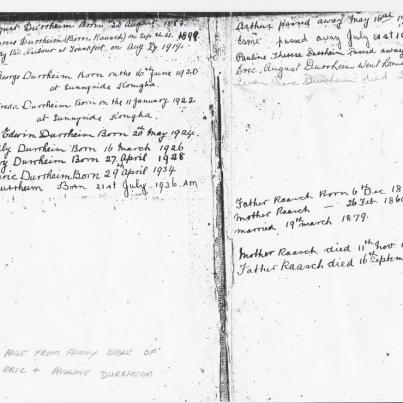 August Durrheim Born 20 August 1885.
(Born Raasch) on Sept 21st. 1898
at Frankfort, on Aug 27, 1919.
George Durrheim Born on the 16th June 1920
at Sunnyside Komgha.
Freda Durrheim Born on the 11 January 1922
at Sunnyside Komgha.
Edwin Durrheim Born 20th May 1924.
Durrheim Born 16 March 1926
Durrheim Born 27 April 1928
Eric Durrheim Born 29th April 1934
Durrheim Born 21st July 1936. AM
PAGE FROM FAMILY BIBLE OF
ERIC + PAULINE DURRHEIM
Arthur passed away May 16th
passed away July
Pauline Therese Durrheim Passed away
Eric August Durrheim Went Home
Durrheim died
Father Raasch Born 6th Dec 18
Mother Raasch — 26 Feb 186
married 19th march 1879.
Mother Raasch died 11th Nov.
Father Raasch died 16th Septem